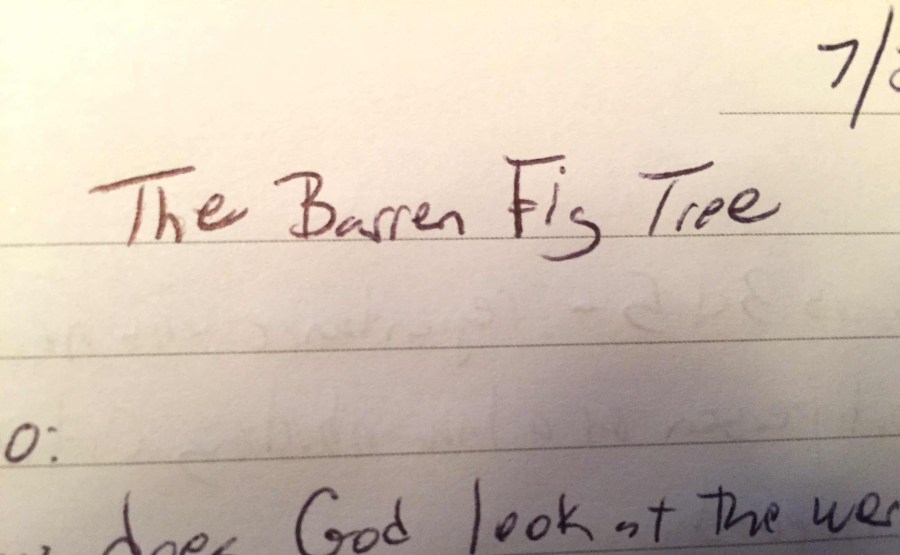 7/
The Barren Fig Tree
o:
does God look at the